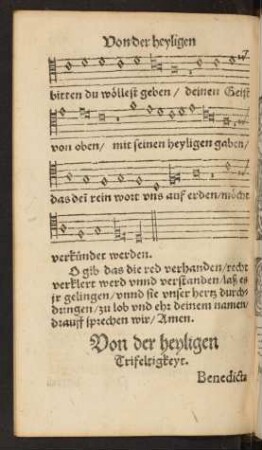 Von der heyligen
bitten du wöllest geben / deinen Geist
von oben / mit seinen heyligen gaben /
das dein rein wort vns / auf erden / möcht
verkündet werden.
O gib das die red verhanden / recht
verklert werd vnnd verstanden / laß es
jr gelingen / vnnd sie vnser hertz durch-
dungen / zu lob vnd ehr deinem namen /
drauff sprechen wir / Amen.
Von der heyligen
Trifeltigkeyt.
Benedicta